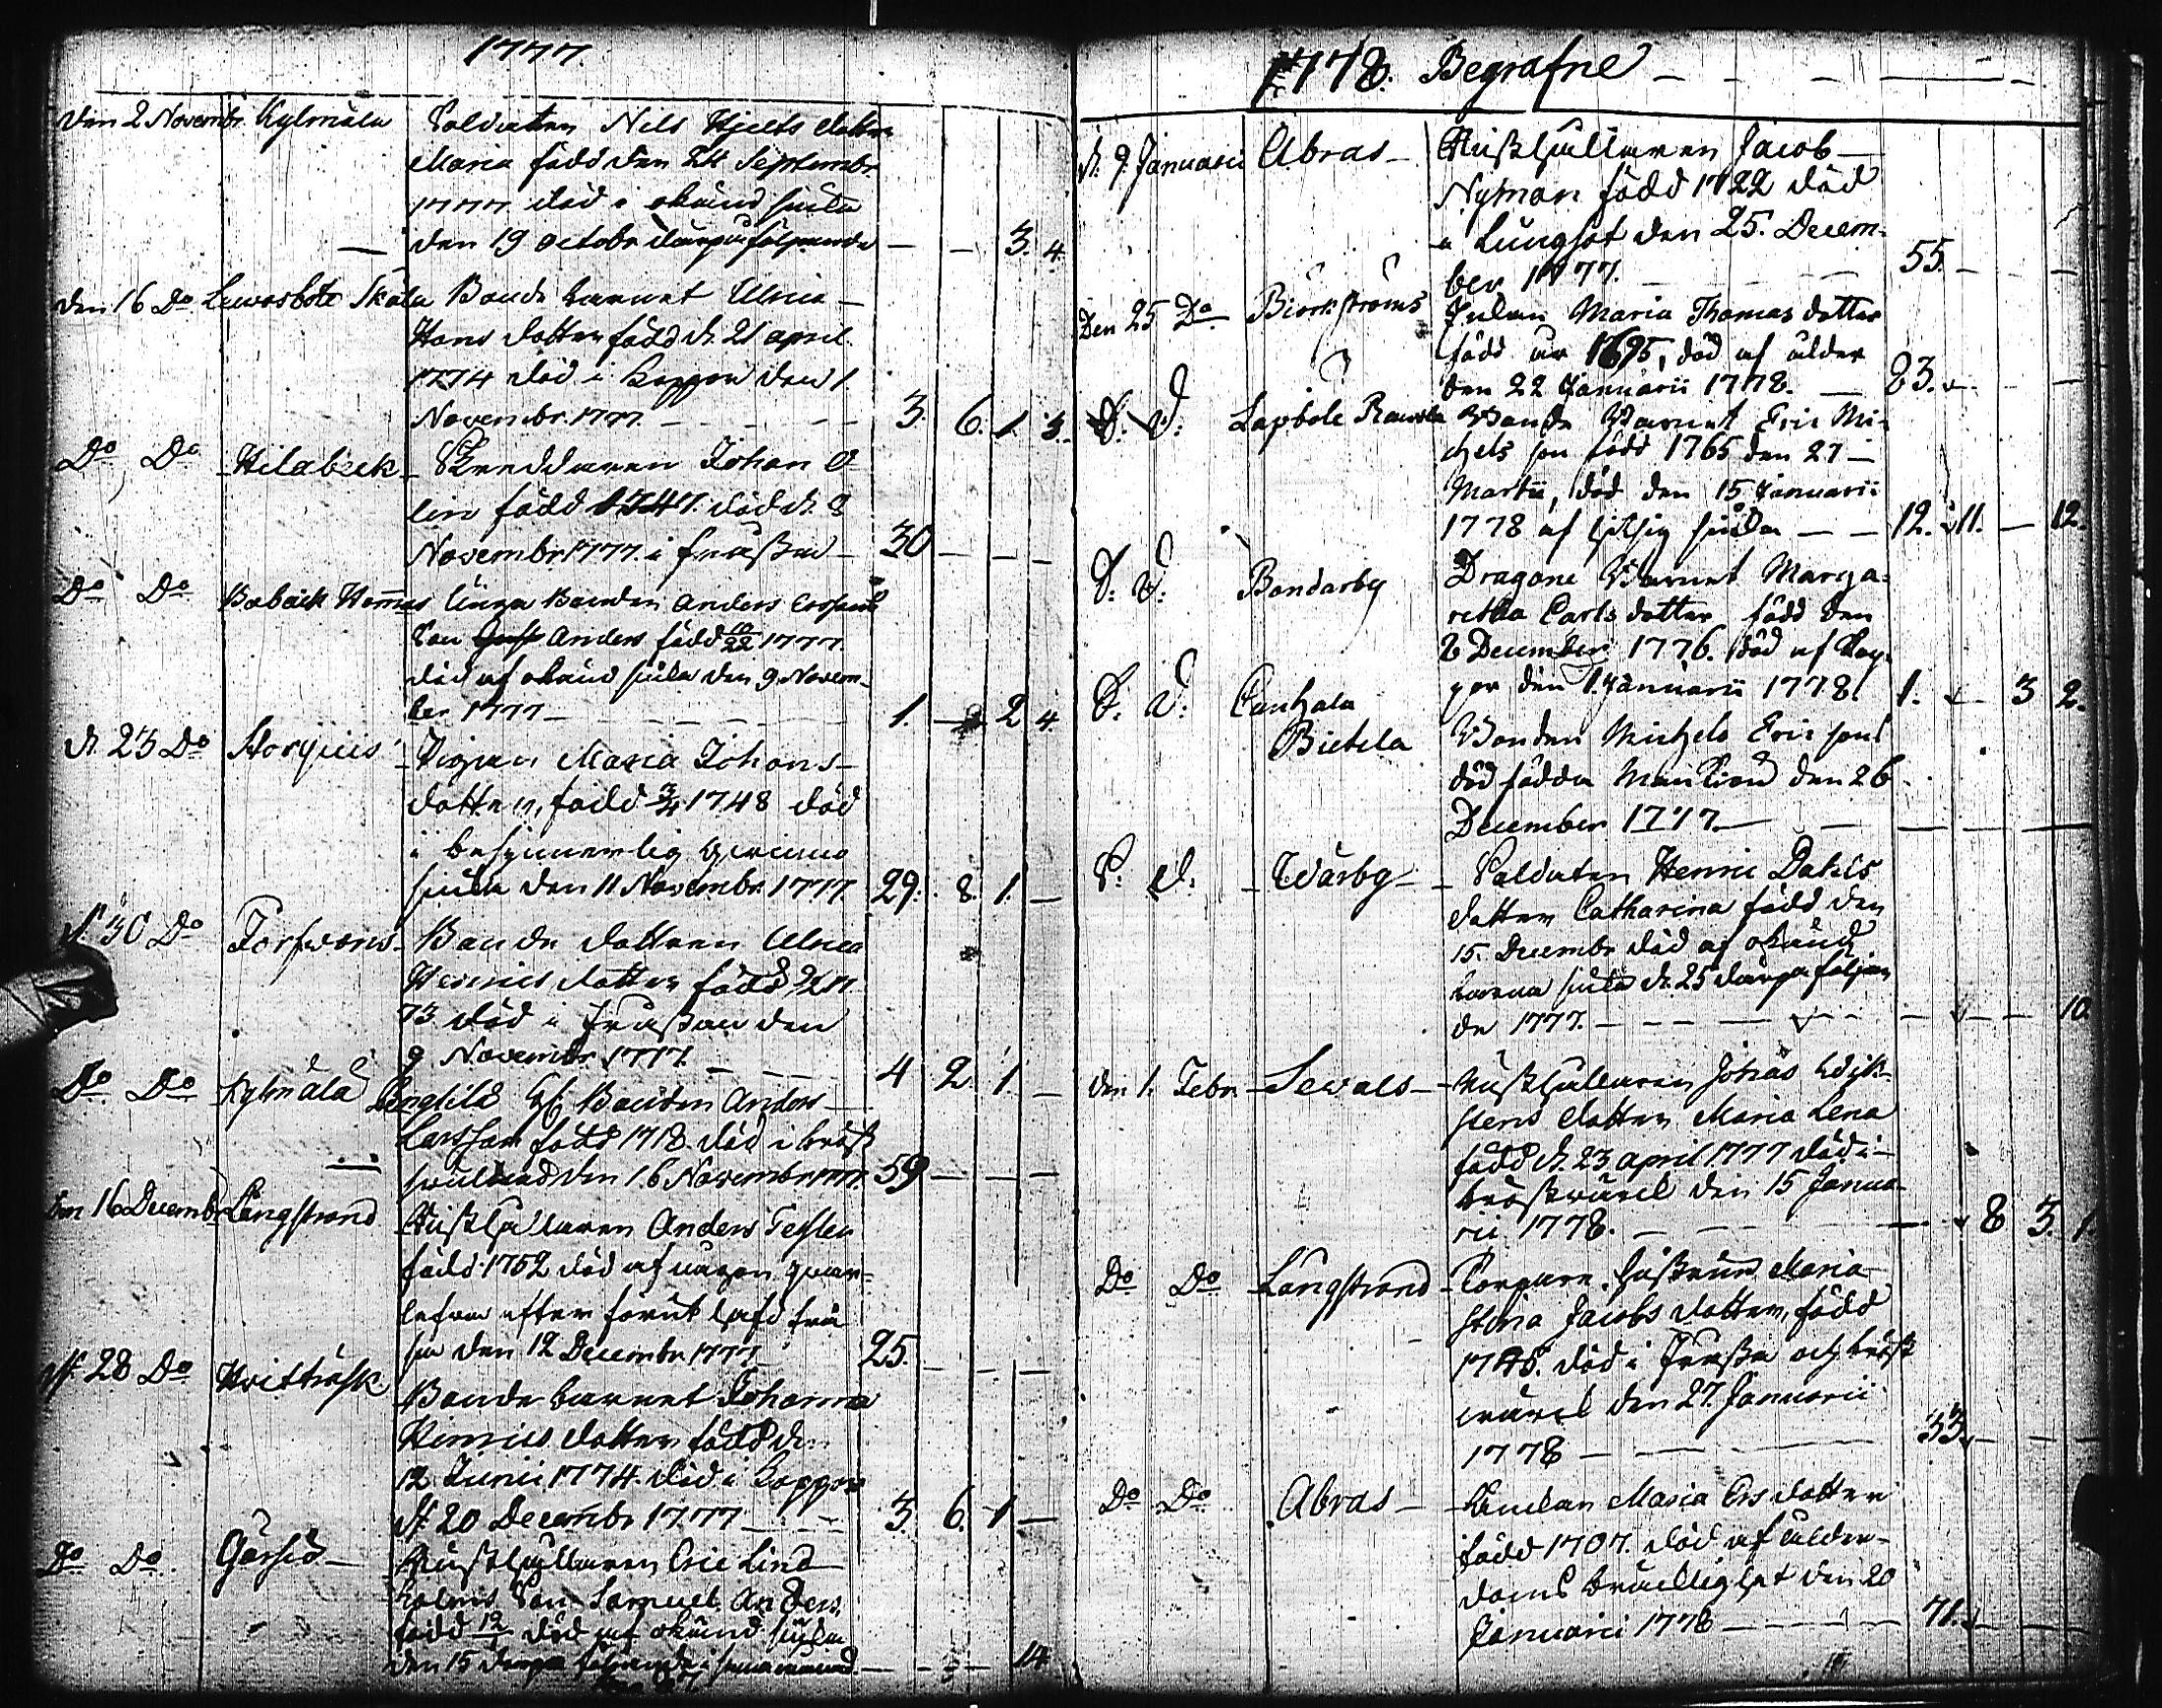 1777.
den 2 Novembr. Kylmäla Soldaten Nils Hjelts dotter
Maria född den 24 Septembr.
1777 död i okänd siuka
den 19 octobr därpåföljande — — 3. 4.
den 16 Do Lewosböle Skäla Bonde barnet Ulrica
Hans dotter född d. 21 april.
1774 död i koppor den 1
Novembr. 1777. — 3. 6. 1. 3.
Do Do Hilabeck Skreddaren Johan O-
lin född 1747. död d. 8
Novembr 1777. i frossan — 30 — — —
Do Do Bobäck Hommas unga Bonden Anders Erssons
Son Anders född 10/22 1777.
död af okänd siuka den 9 Novem-
ber 1777 — 1. — 2 4.
d. 23 Do Storgüs Pigan Maria Johans-
dotter, född 3/4 1748 död
i besynnerlig
siuka den 11 Novembr. 1777. 29. 8. 1. —
d. 30 Do Torfvans Bonde dottren Ulrica
Henrics dotter född
73 död i frossan den
9 Novembr 1777. — 4 2 1. —
Do Do Kylmälä Bengtila Bonden Anders
Larsson född 1718. död i bröst
den 16 Novembr 1777. 59 — — —
den 16 Decembr Långstrand Huushållaren Anders Tesslen
född 1752 död af
efter förut hafd frå
sa den 12 Decembr 1777. 25. — — —
d. 28 Do Hvitträsk Bonde barnet Johanna
Henrics dotter född den
12 Junii 1774. död i koppor
d. 20 Decembr 1777 — 3. 6. 1 —
Do Do Gersiö Huushållaren Eric Lind
holms Son Samuel Anders,
född 12/ död af okänd siuka
den 15 därpå följande i samma månad. — — — 14
1778. Begrafne
d. 9 Januarii Abras Huushållaren Jacob
Nyman född 1722 död
i Lungsot den 25. Decem-
ber 1777. — 55. — — —
Den 25 Do Biörkströms Enkan Maria Thomas dotter
född år 1695, död af ålder
den 22 Januarii 1778. — 83. — —
D. D. Lapböle Rawala Bonde Barnet Eric Mi-
chels son född 1765 den 27
Martii, död den 15 Januarii
1778 af hitsig siuka — 12. 11. — 12.
D. D. Bondarby Dragone Barnet Marga-
retha Carls dotter född den
8 December 1776. död af kop-
por den 1. Januarii 1778. 1. — 3 2.
D. D. Cantzala
Bietila Bonden Michels Eric sons
död födda Mankiön den 26
December 1777. —
D. D. Wärby Soldaten Henric Dakes
dotter Catharina född den
15. Decembr död af okänd
barna siuka d. 25 därpå följan
de 1777. — — — 10.
den 1. Febr. Sewals Huushållaren Johas Wik-
stens dotter Maria Lena
född d. 23 april 1777 död i
bröstwärck den 15 Janua-
rii 1778. — 8 3. 1
Do Do Långstrand Torpare hustrun Maria
Stina Jacobs dotter, född
1745. död i frossa och bröst
wärck den 27. Januarii
1778 — 33. — — —
Do Do Abras Enkan Maria Ers dotter
född 1707. död af ålder-
doms bräcklighet den 20
Januarii 1778 — 71. — —